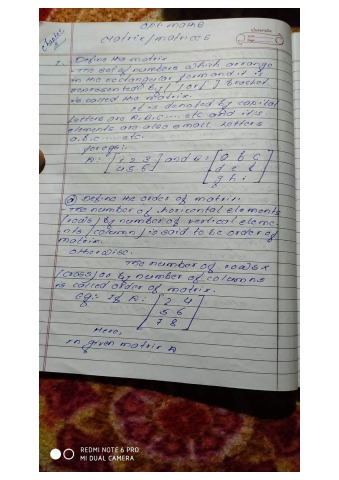 Chapter
opt-maths
Matrix/matrices
1. Define the matrix
- The set of numbers which arrange
in the rectangular form and it is
represented by [ ] or ( ) bracket
is called the matrix.
It is denoted by capital
letters are A.B.C.... etc and it's
elements are also small letters
a.b.c..... etc.
for eg:-
A= [1 2 3 and B= [a b c
4 5 6] d e f
g h i]
Define the order of matrix:
- The number of horizontal elements
(rows) by number of vertical eleme-
nts (column) is said to be order of
matrix.
otherwise:
The number of rows x
(cross) or by number of columns
is called order of matrix.
eg:- If A= [2 4
5 6
7 8]
Here,
in given matrix A
REDMI NOTE 6 PRO
MI DUAL CAMERA